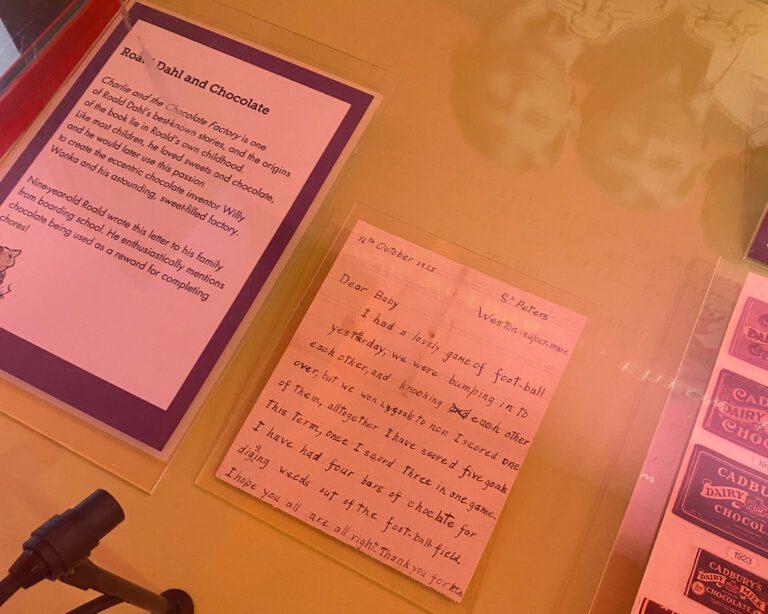 Roald Dahl and Chocolate
Charlie and the Chocolate Factory is one
of Roald Dahl's best-known stories, and the origins
of the book lie in Roald's own childhood.
Like most children, he loved sweets and chocolate,
and he would later use this passion
to create the eccentric chocolate inventor Willy
Wonka and his astounding, sweet-filled factory.
Nine-year-old Roald wrote this letter to his family
from boarding school. He enthusiastically mentions
chocolate being used as a reward for completing
chores!
4th October 1925
St Peters
Weston-super-mare
Dear Baby
I had a lovely game of foot-ball
yesterday, we were bumping in to
each other, and knocking each other
over, but we won goals to non I scored one
of them, alltogether I have scored five goals
This term, once I scord three in one game.
I have had four bars of choclate for
diging weeds out of the foot-ball-field.
I hope you all are all right. Thank you for
CADBURY
DAIRY
CHOCO
CADBURY'S
DAIRY
CHOCOL
1923
CADBURY'S
DAIRY MILK
CHOCOLATE